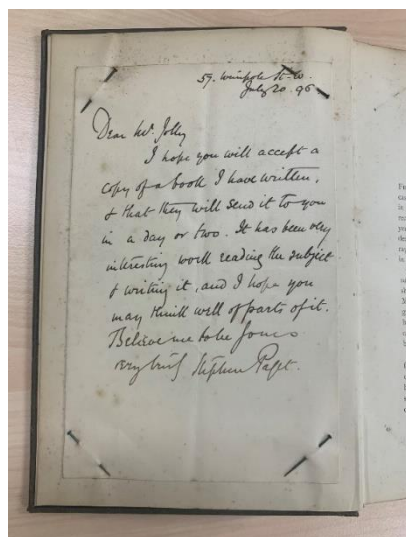 57. Wimpole St. W.
July 20. 96
Dear Mr. Jolly
I hope you will accept a
copy of a book I have written,
& that they will send it to you
in a day or two. It has been very
interesting work reading the subject
& writing it, and I hope you
may think well of parts of it.
Believe me to be yours
very truly Stephen Paget.